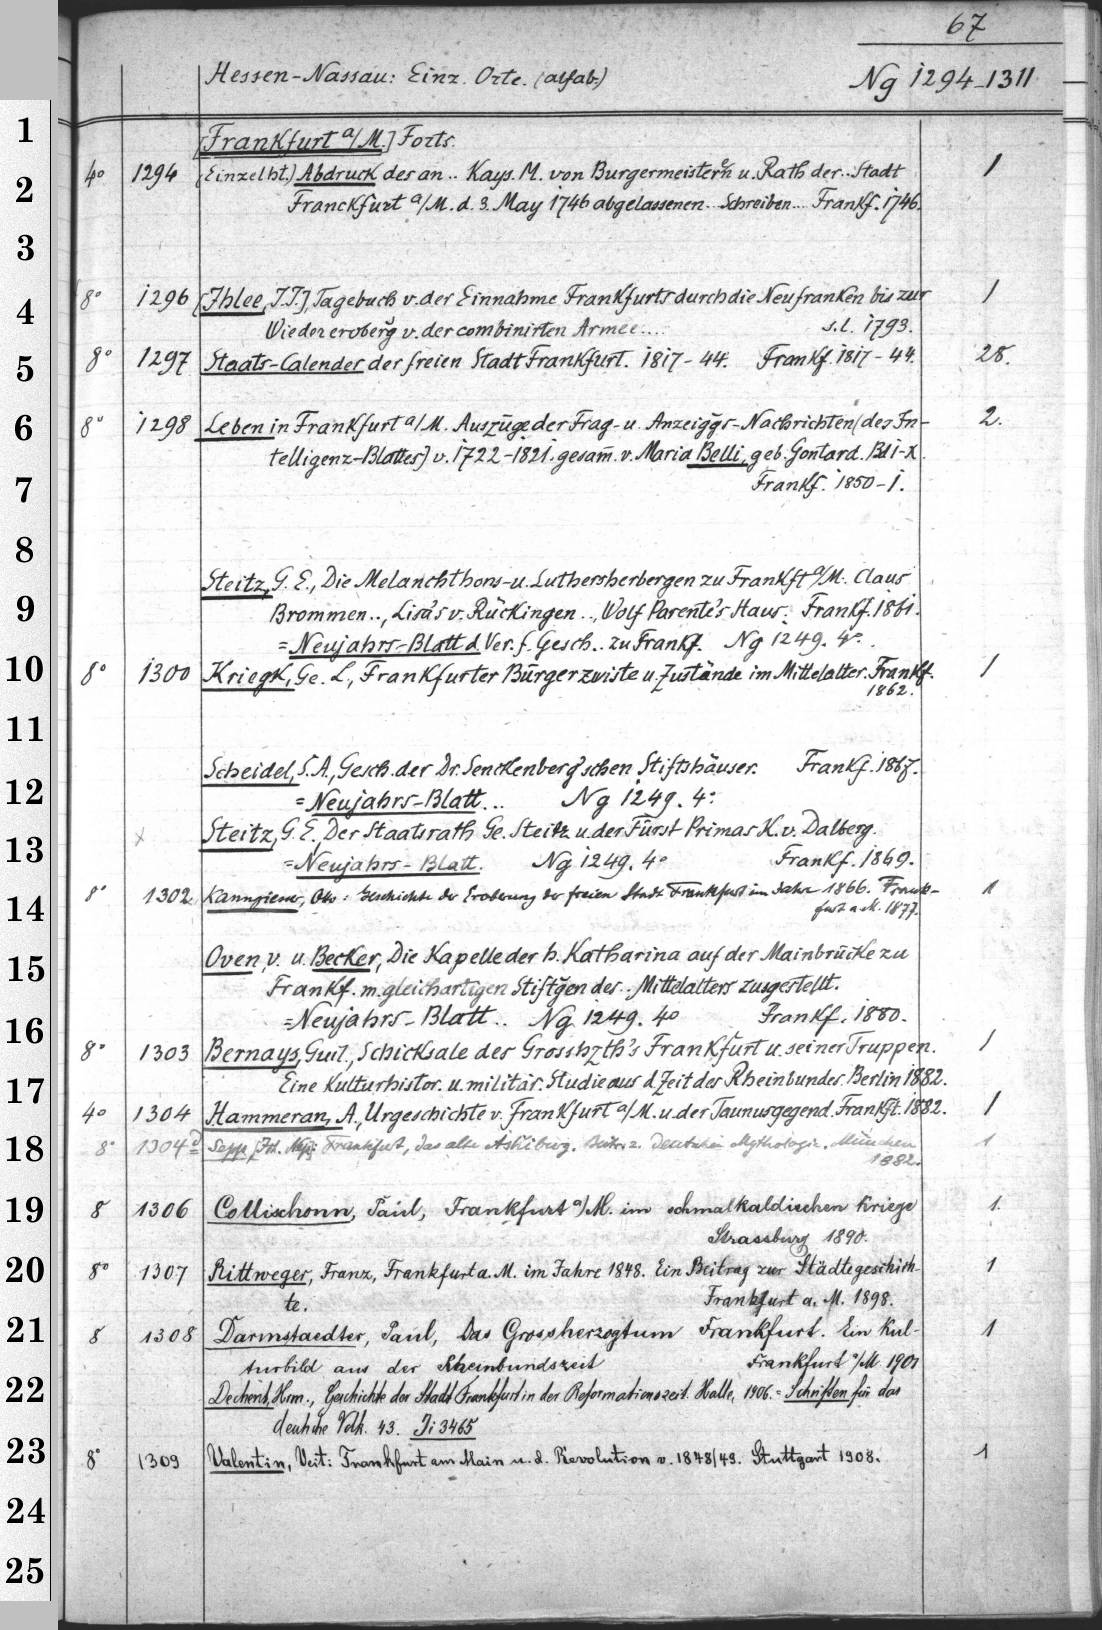 67
Hessen-Nassau: Einz. Orte. (alfab.) Ng 1294-1311
1
[Frankfurt a/M.] Forts.
4o 1294 (Einzelht.) Abdruck des an .. Kays. M. von Burgermeistern u. Rath der .. Stadt 1
2
Franckfurt a/M. d. 3. May 1746 abgelassenen .. Schreiben ... Frankf. 1746.
3
8o 1296 [Ihlee, J.J.], Tagebuch v. der Einnahme Frankfurts durch die Neufranken bis zur 1
4
Wiedereroberg v. der combinirten Armee .... s.l. 1793.
5
8o 1297 Staats-Calender der freien Stadt Frankfurt. 1817-44. Frankf. 1817-44. 28.
6
8o 1298 Leben in Frankfurt a/M. Auszüge der Frag- u. Anzeiggs-Nachrichten (des In- 2.
telligenz-Blattes) v. 1722-1821. gesam̄. v. Maria Belli, geb. Gontard. Bd i-X.
7
Frankf. 1850-1.
8
Steitz, G. E., Die Melanchthons- u. Luthersherbergen zu Frankft a/M. Claus
9
Brommen .., Lisa's v. Rückingen .., Wolf Parente's Haus. Frankf. 1861.
= Neujahrs-Blatt d. Ver. f. Gesch. .. zu Frankf. Ng 1249. 4o.
10
8o 1300 Kriegk, Ge. L., Frankfurter Bürgerzwiste u. Zustände im Mittelalter. Frankf. 1
1862.
11
Scheidel, S. A., Gesch. der Dr. Senckenberg'schen Stiftshäuser. Frankf. 1867.
12
= Neujahrs-Blatt ... Ng 1249. 4o
x Steitz, G. E., Der Staatsrath Ge. Steitz u. der Fürst Primas K. v. Dalberg.
13
= Neujahrs-Blatt. Ng 1249. 4o Frankf. 1869.
8o 1302 Kanngiesser, Otto: Geschichte der Eroberung der freien Stadt Frankfurt im Jahre 1866. Frank- 1
14
furt a. M. 1877.
15
Oven, v. u. Becker, Die Kapelle der h. Katharina auf der Mainbrücke zu
Frankf. m. gleichartigen Stiftgen des .. Mittelalters zusgestellt.
16
= Neujahrs-Blatt .. Ng 1249. 4o Frankf. 1880.
8o 1303 Bernays, Guil., Schicksale des Grosshzth's Frankfurt u. seiner Truppen. 1
17
Eine Kulturhistor. u. militär. Studie aus d. Zeit des Rheinbundes. Berlin 1882.
4o 1304 Hammeran, A., Urgeschichte v. Frankfurt a/M. u. der Taunusgegend. Frankft. 1882. 1
18
8o 1304d Sepp, Frankfurt, das alte Askiburg. Beitr. z. Deutschen Mythologie. München 1
1882.
19
8 1306 Collischonn, Paul, Frankfurt a/M. im schmalkaldischen Kriege 1.
Strassburg 1890.
20
8o 1307 Rittweger, Franz, Frankfurt a. M. im Jahre 1848. Ein Beitrag zur Städtegeschich- 1
te. Frankfurt a. M. 1898.
21
8 1308 Darmstaedter, Paul, Das Grossherzogtum Frankfurt. Ein Kul- 1
turbild aus der Rheinbundszeit Frankfurt a/M 1901
22
Dechent, Hrm., Geschichte der Stadt Frankfurt in der Reformationszeit. Halle, 1906. = Schriften für das
deutsche Volk. 43. Ji 3465
23
8o 1309 Valentin, Veit: Frankfurt am Main u. d. Revolution v. 1848/49. Stuttgart 1908. 1
24
25